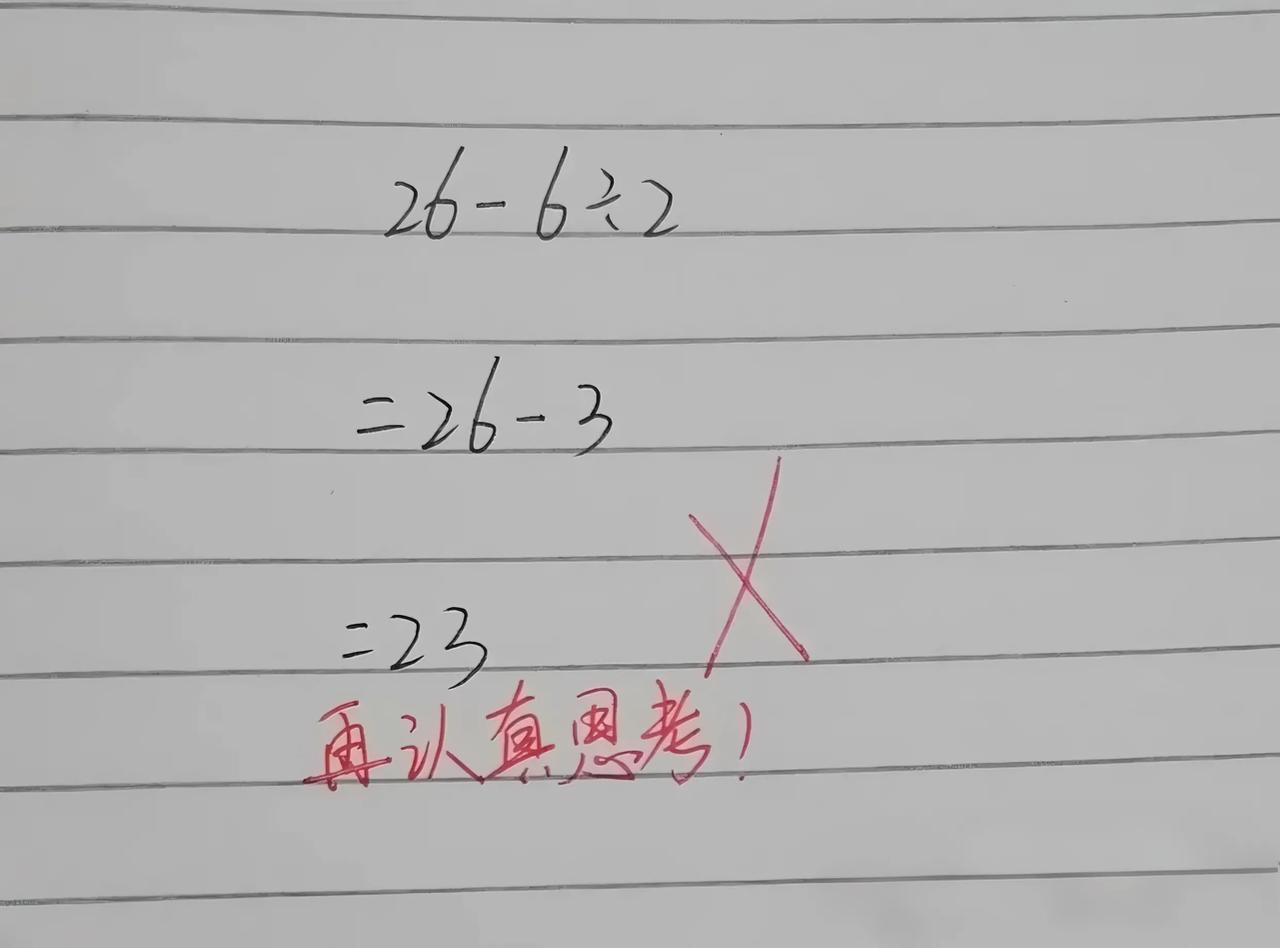 26-6÷2
=26-3
=23
再认真思考！